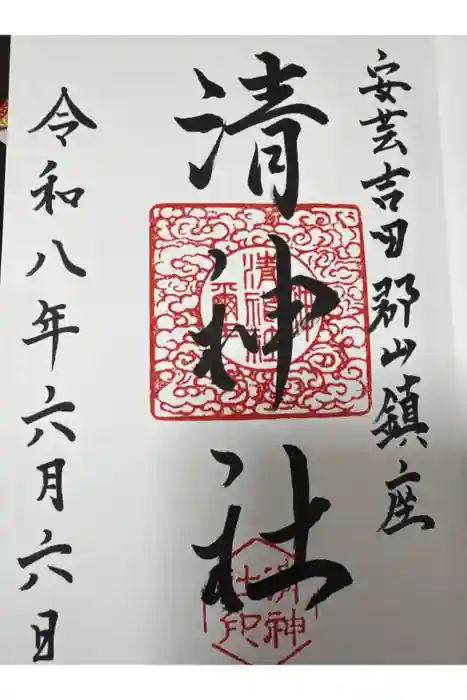 安芸吉田郡山鎮座
清神社
令和八年六月六日
清神
社印